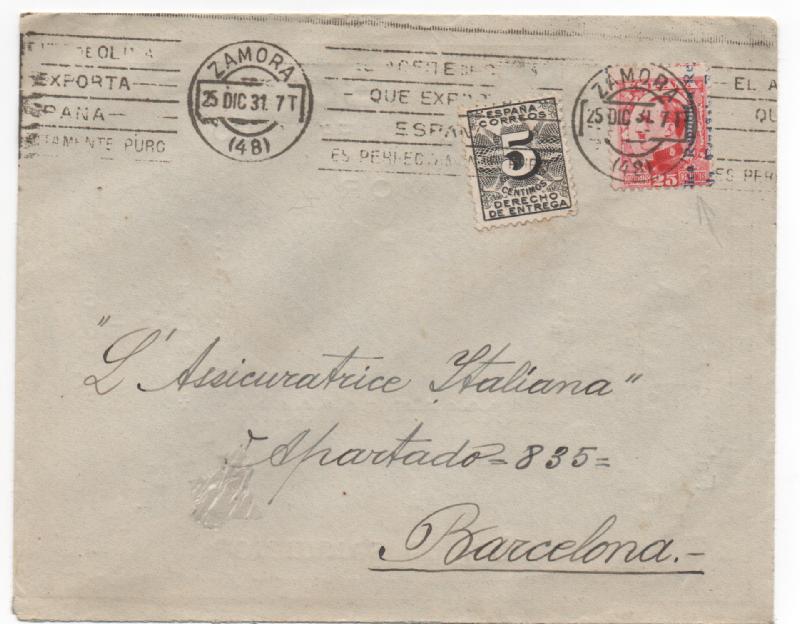 EXPORTA
ES PERFECTAMENTE PURO
ZAMORA
25 DIC 31. 7T
(48)
EL ACEITE DE
QUE EXPORTA
ESPAÑA
ES PERFECTAMENTE
ESPAÑA
CORREOS
5
CENTIMOS
DERECHO
DE ENTREGA
ZAMORA
25 DIC 31. 7T
(48)
25
EL A
QU
ES PER
"L'Assicuratrice Italiana"
Apartado = 835 =
Barcelona.-